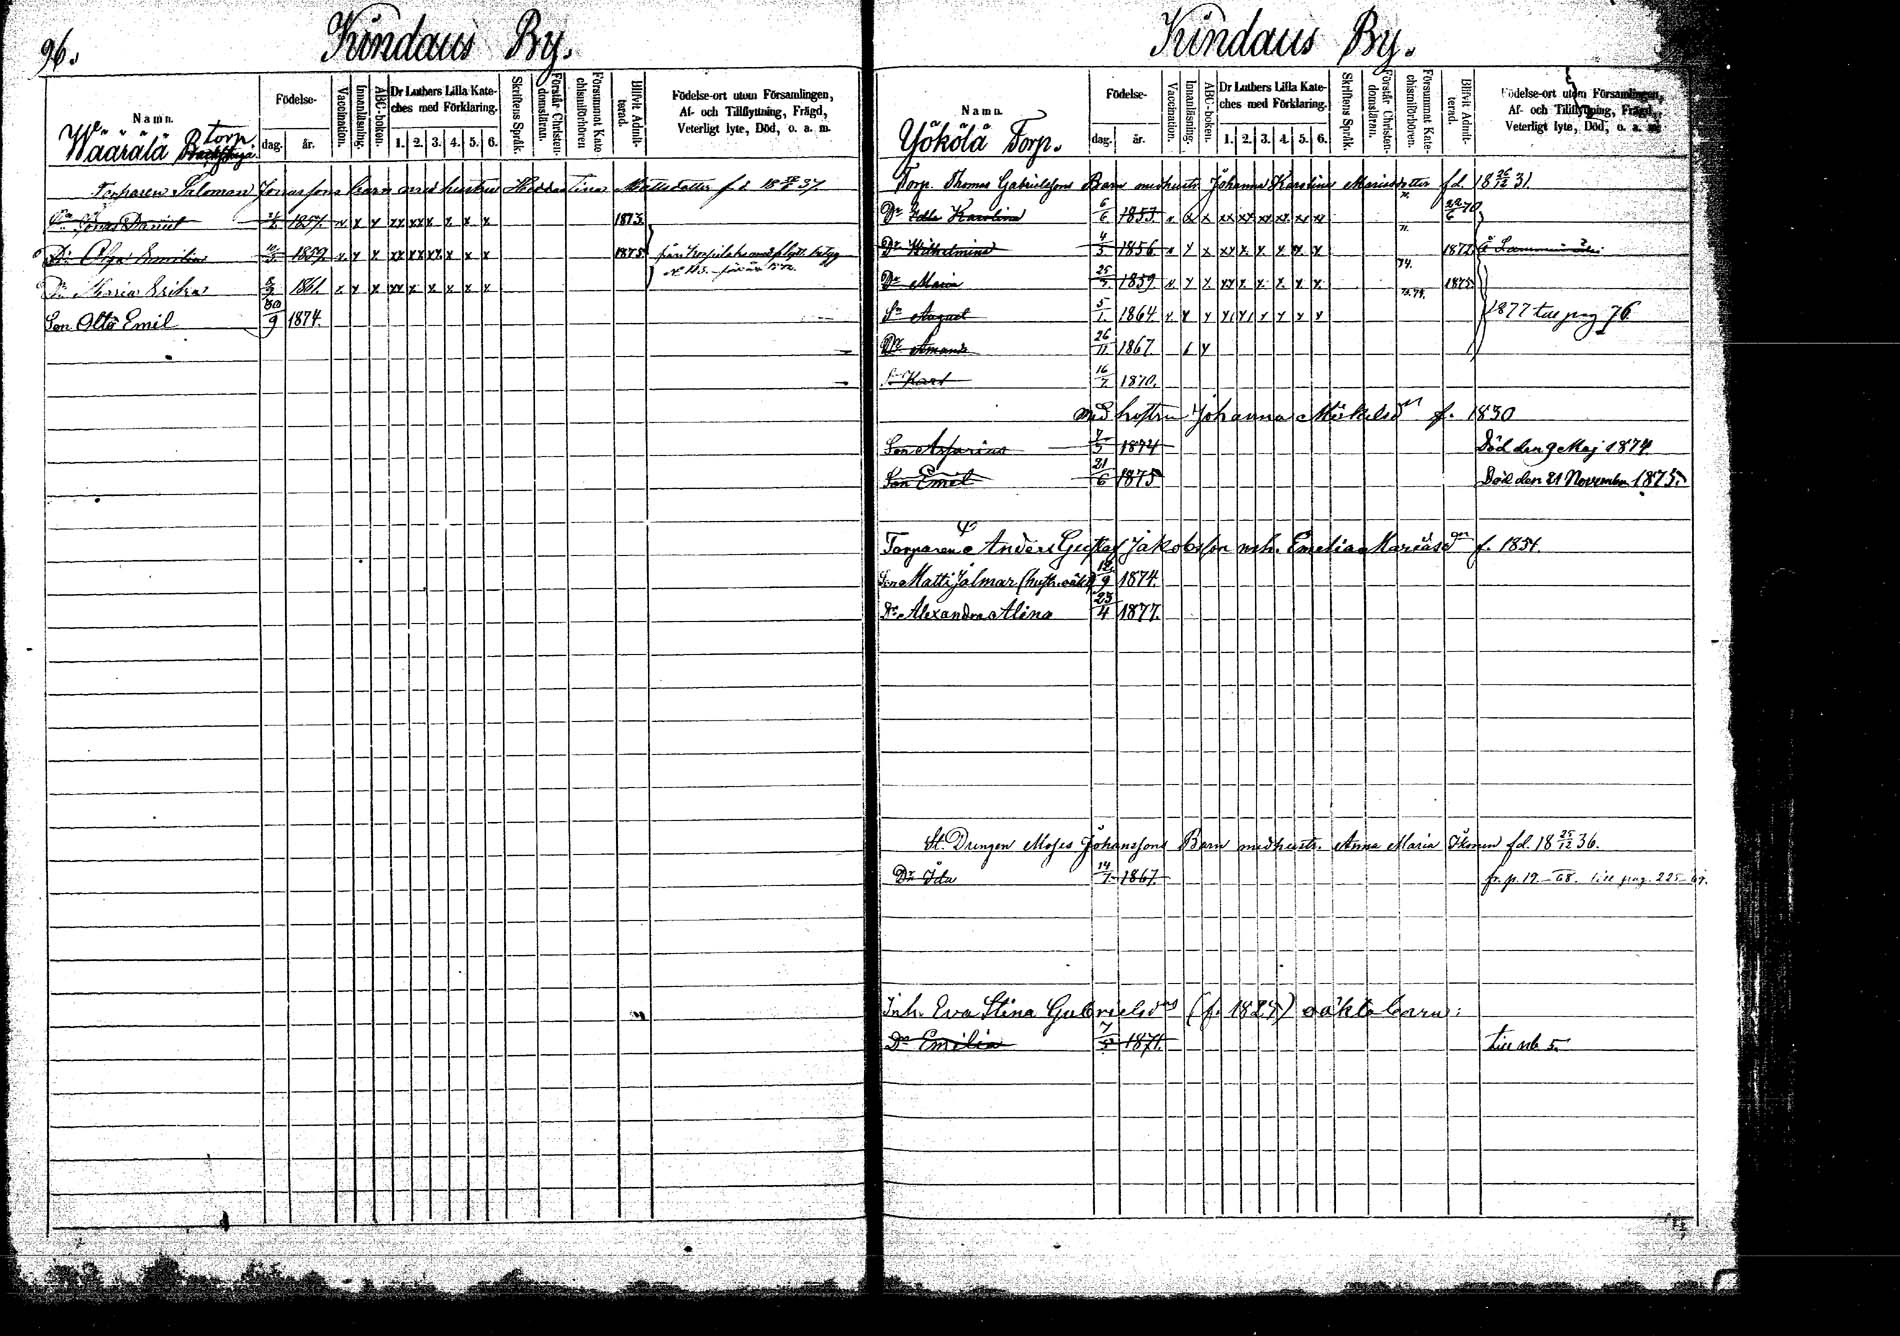 96.
Kindaus By.
Namn.
Födelse-
dag.
år.
Vaccination.
Innanläsning.
ABC-boken.
Dr Luthers Lilla Kate-
ches med Förklaring.
1. 2. 3. 4. 5. 6.
Skriftens Språk.
Förstår Christen-
domsläran.
Försummat Kate-
chismiförhören
Blifvit Admit-
terad.
Födelse-ort utom Församlingen,
Af- och Tillflyttning, Frägd,
Veterligt lyte, Död, o. a. m.
Wäärälä Torp.
Torparen Saloman Jonassons barn med hustru Hedda Mattsdotter f d 18 37.
Sn Jonas Daniel 1857. x x x xx xx x x x x 1873.
Dr Olga Emilia 1859. x x x xx xx xx x x x 1875.
Dr Maria Erika 1861. x x x xx x x x x x
Son Otto Emil 30/9 1874.
Kindaus By.
Namn.
Födelse-
dag.
år.
Vaccination.
Innanläsning.
ABC-boken.
Dr Luthers Lilla Kate-
ches med Förklaring.
1. 2. 3. 4. 5. 6.
Skriftens Språk.
Förstår Christen-
domsläran.
Försummat Kate-
chismiförhören.
Blifvit Admit-
terad.
Födelse-ort utom Församlingen,
Af- och Tillflyttning, Frägd,
Veterligt lyte, Död, o. a. m.
Yökölä Torp.
Torp. Thomas Gabrielssons Barn med hustr. Johanna Karolina f d. 18 26/12 31.
Dr Karolina 6/6 1853 x x x xx xx xx xx xx xx 70
Dr Wilhelmina 4/5 1856 x x x xx x x x x x 1872.
Dr Maria 25/ 1859 x x x xx x x x x x 74. 1875.
Sn August 5/1 1864 x x x x x x x x x 1877 till pag 76.
Dr Amanda 26/11 1867.
Sn Karl 16/7 1870.
med hustru Johanna Mickelsdr f. 1830
Son 7/5 1874 Död den 9 Maj 1874.
Son Emil 21/6 1875 Död den 21 November 1875.
Torparen Anders Gustaf Jakobsson mh. Emelia f. 1854.
Son Matti Jalmar 12/9 1874.
Dr Alexandra Alina 23/4 1877.
St. Drengen Moses Johanssons Barn med hustr. Anna Maria Ikonen f d. 18 25/12 36.
Dr Ida 14/7 1867. fr. p. 19.-68. till pag. 225-69.
Inh. Eva Stina Gabrielsdrs (f. 1824) oäkta barn:
Dr Emilia 7/5 1871. till No 5.